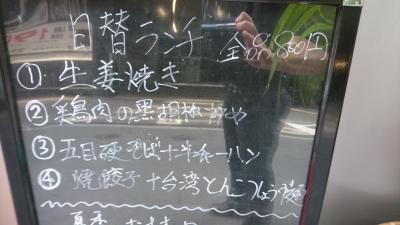 日替ランチ 全品880円
① 生姜焼き
② 鶏肉の黒胡椒炒め
③ 五目硬そば+半チャーハン
④ 焼餃子+台湾とんこつしょう麺